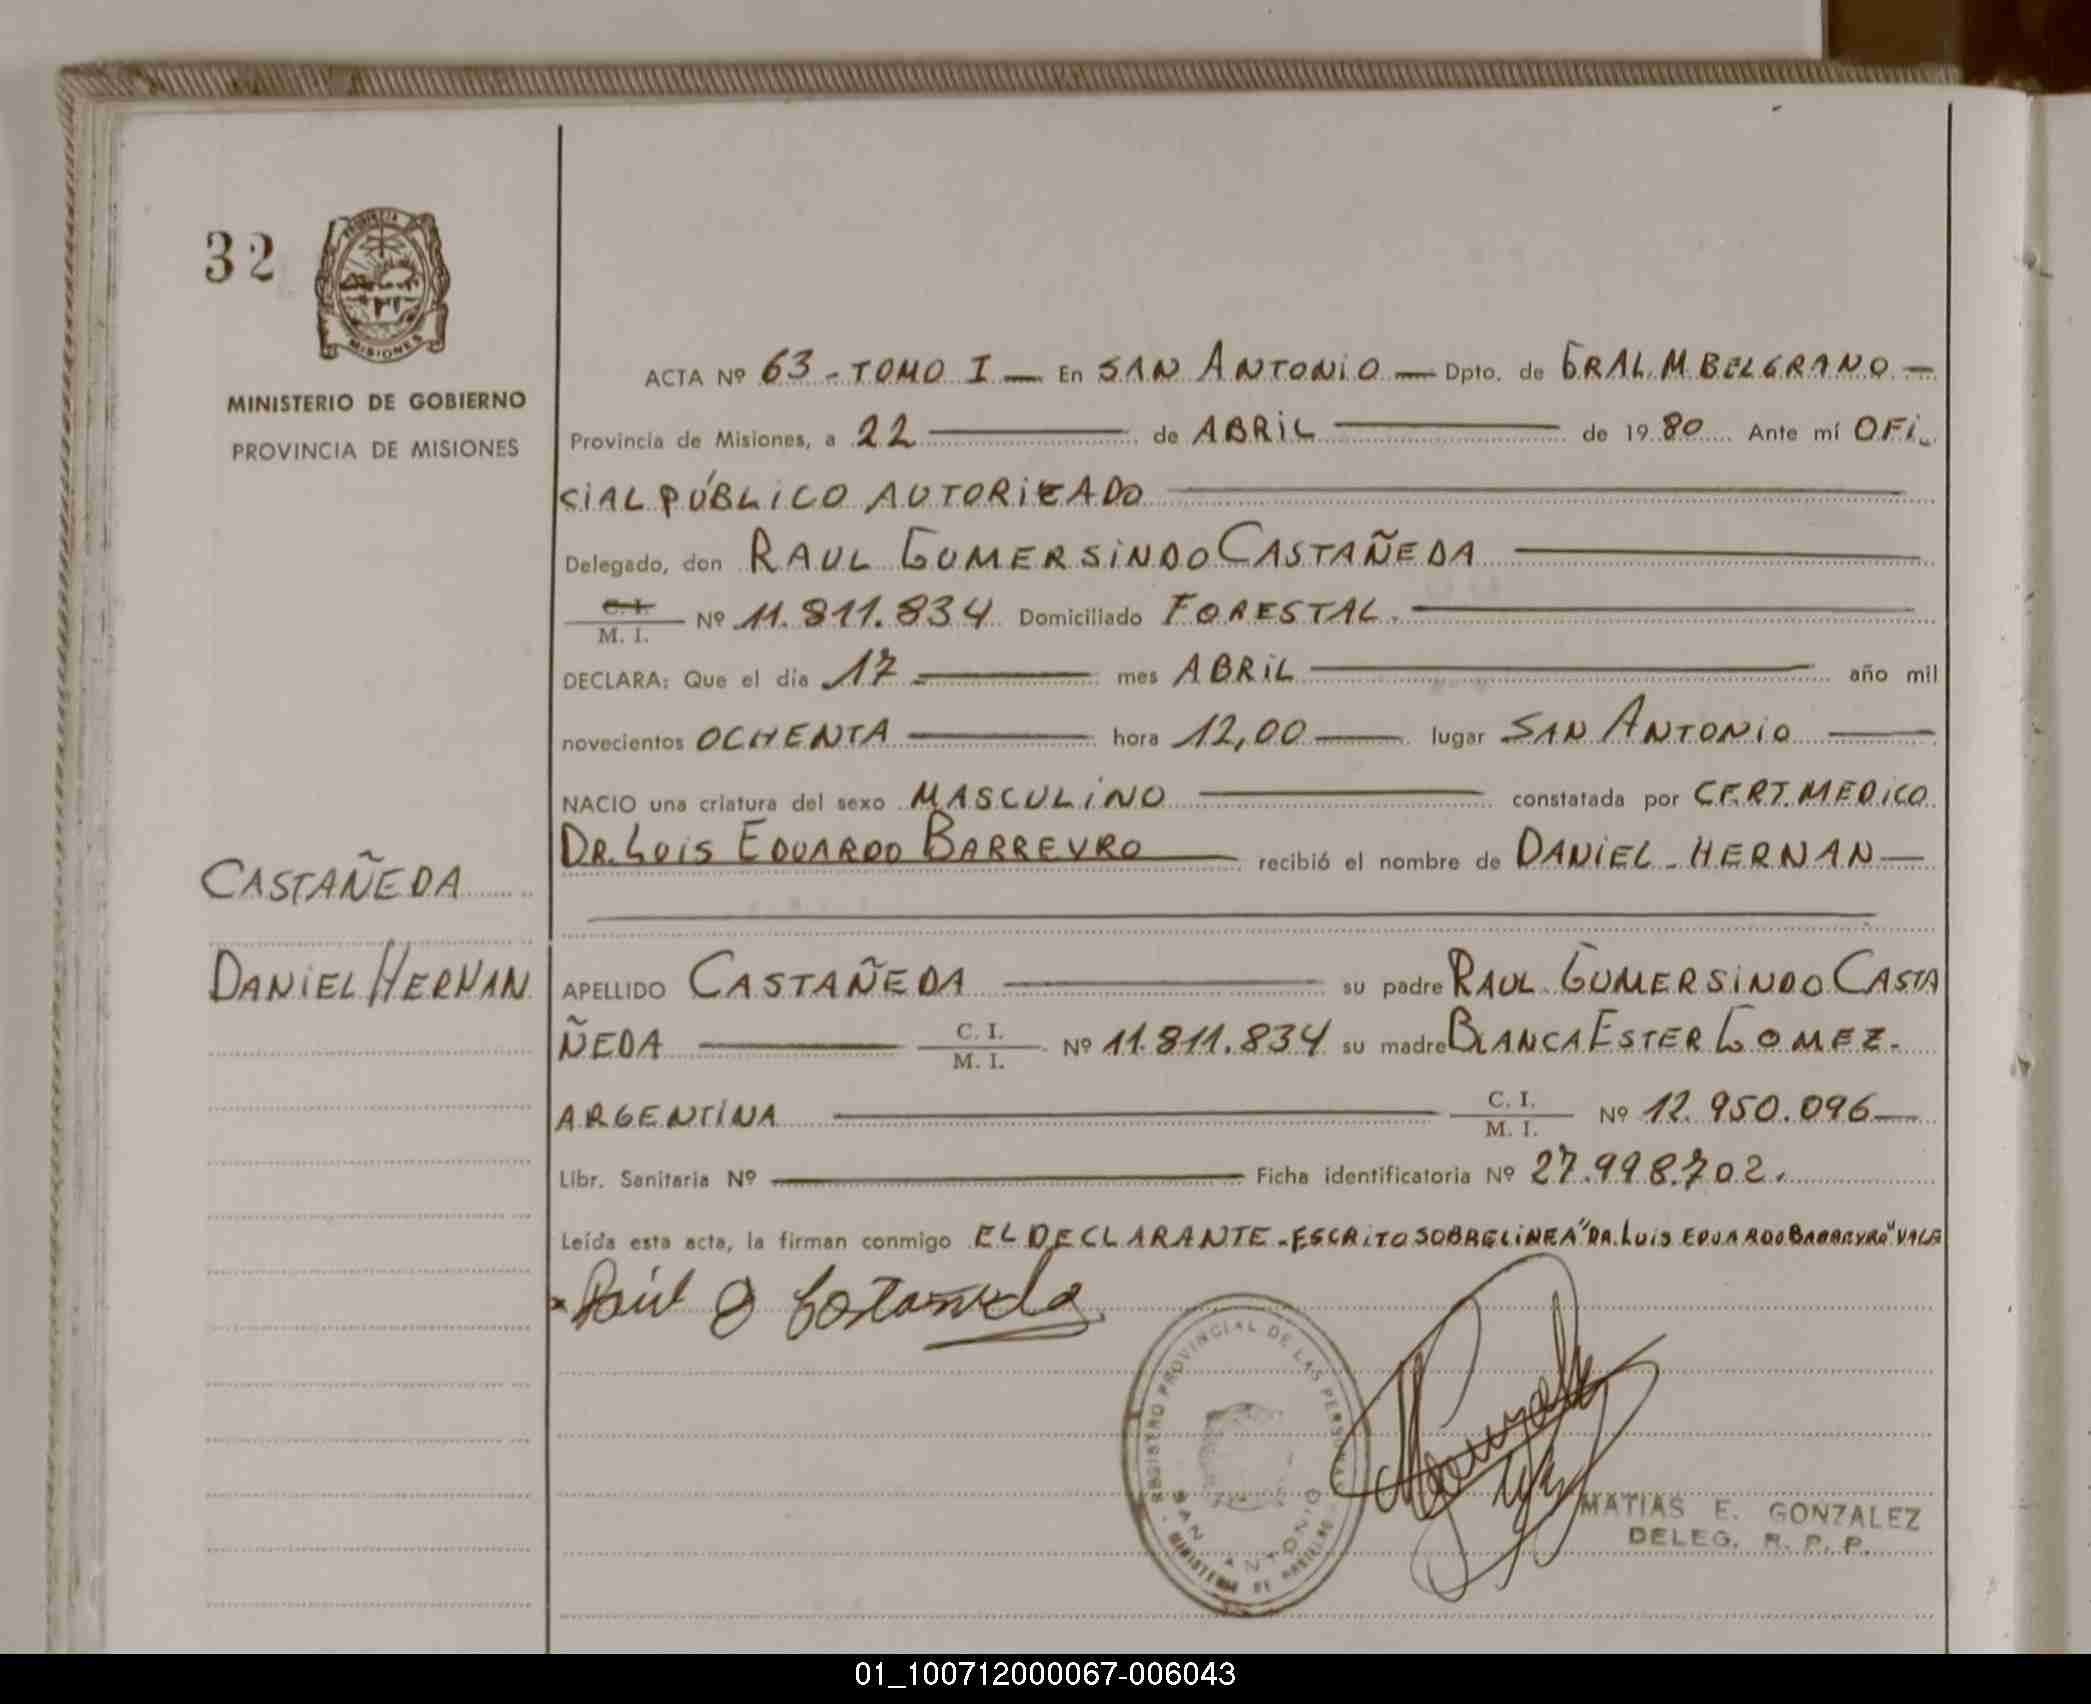 32
PROVINCIA
MISIONES
MINISTERIO DE GOBIERNO
PROVINCIA DE MISIONES
ACTA Nº 63 - TOMO I — En SAN ANTONIO — Dpto. de GRAL. M. BELGRANO —
Provincia de Misiones, a 22 — de ABRIL — de 1980 Ante mí OFI-
CIAL PÚBLICO AUTORIZADO —
Delegado, don RAUL GUMERSINDO CASTAÑEDA —
C. I. / M. I. Nº 11.811.834 Domiciliado FORESTAL. —
DECLARA: Que el día 17 — mes ABRIL — año mil
novecientos OCHENTA — hora 12,00 — lugar SAN ANTONIO —
NACIO una criatura del sexo MASCULINO — constatada por CERT. MEDICO
DR. LUIS EDUARDO BARREYRO — recibió el nombre de DANIEL - HERNAN —
CASTAÑEDA
DANIEL HERNAN
APELLIDO CASTAÑEDA — su padre RAUL GUMERSINDO CASTA
ÑEDA — C. I. / M. I. Nº 11.811.834 su madre BLANCA ESTER GOMEZ.
ARGENTINA — C. I. / M. I. Nº 12.950.096 —
Libr. Sanitaria Nº — Ficha identificatoria Nº 27.998.702.
Leída esta acta, la firman conmigo EL DECLARANTE - ESCRITO SOBRE LINEA "DR. LUIS EDUARDO BARREYRO" VALE
Raúl G Castañeda
REGISTRO PROVINCIAL DE LAS PERSONAS
SAN ANTONIO
MINISTERIO DE
MATIAS E. GONZALEZ
DELEG. R. P. P.
01_100712000067-006043